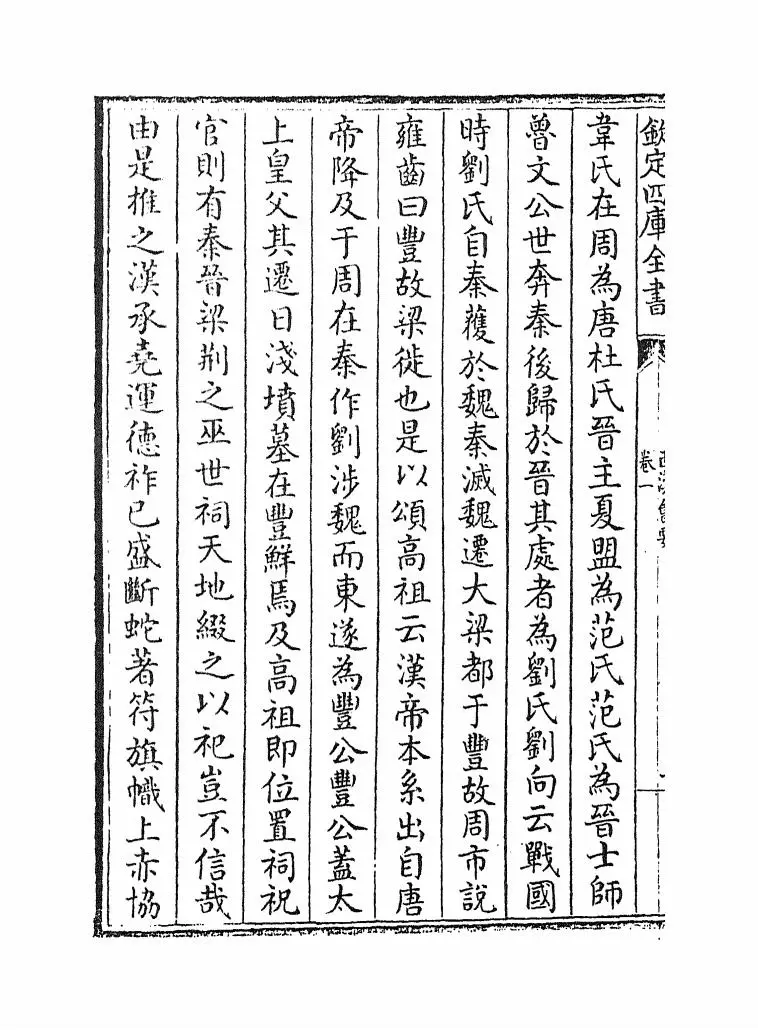 欽定四庫全書
卷一
韋氏在周為唐杜氏晉主夏盟為范氏范氏為晉士師
魯文公世奔秦後歸於晉其處者為劉氏劉向云戰國
時劉氏自秦蒦於魏秦滅魏遷大梁都于豐故周市說
雍齒曰豐故梁徙也是以頌高祖云漢帝本系出自唐
帝降及于周在秦作劉涉魏而東遂為豐公豐公蓋太
上皇父其遷日淺墳墓在豐鮮焉及高祖即位置祠祀
官則有秦晉梁荆之巫世祠天地綴之以祀豈不信哉
由是推之漢承堯運德祚已盛斷蛇著符旗幟上赤協